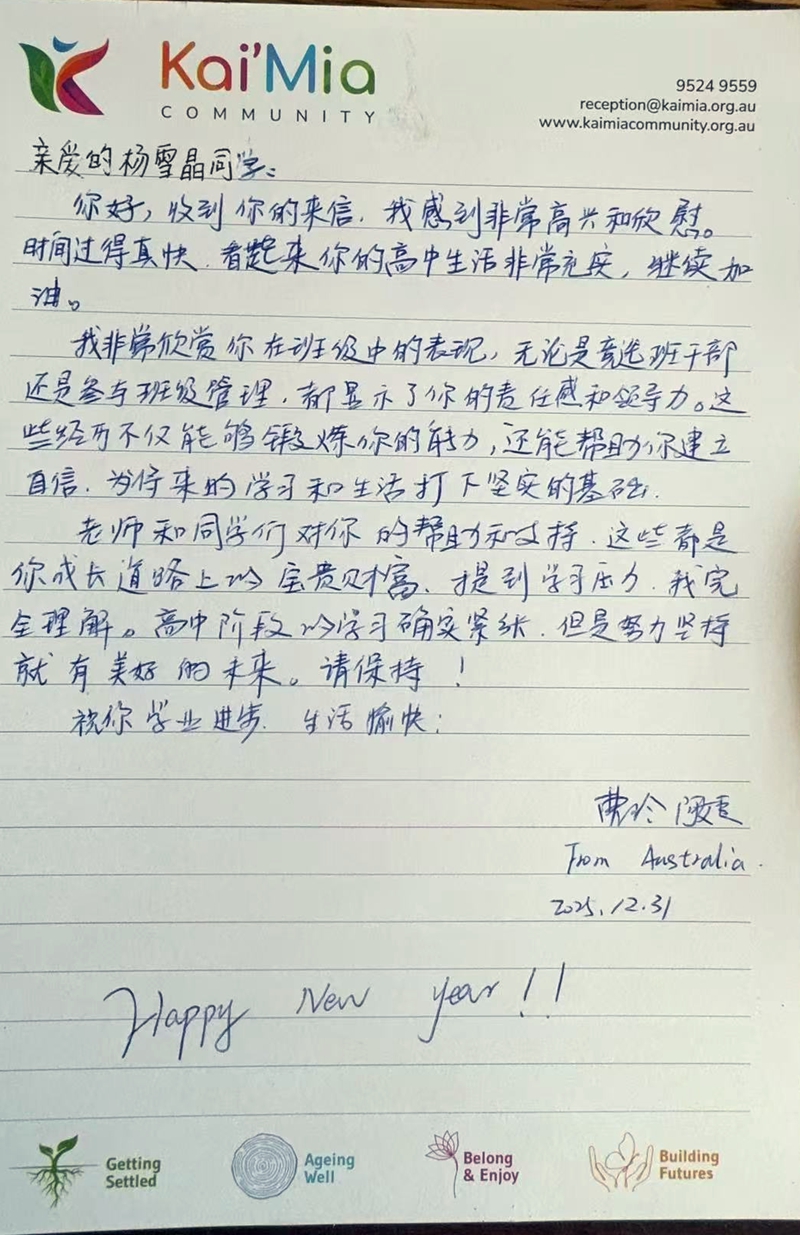 Kai'Mia
COMMUNITY
9524 9559
reception@kaimia.org.au
www.kaimiacommunity.org.au
亲爱的杨雪晶同学：
你好，收到你的来信，我感到非常高兴和欣慰。
时间过得真快，看起来你的高中生活非常充实，继续加
油。
我非常欣赏你在班级中的表现，无论是竞选班干部
还是参与班级管理，都显示了你的责任感和领导力。这
些经历不仅能够锻炼你的能力，还能帮助你建立
自信，为将来的学习和生活打下坚实的基础。
老师和同学们对你的帮助和支持，这些都是
你成长道路上的宝贵财富，提到学习压力，我完
全理解。高中阶段的学习确实紧张，但是努力坚持
就有美好的未来。请保持！
祝你学业进步，生活愉快：
费玲阿姨
From Australia.
2025.12.31
Happy New year!!
Getting
Settled
Ageing
Well
Belong
& Enjoy
Building
Futures